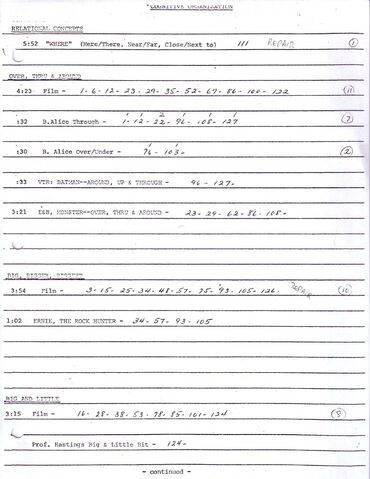 COGNITIVE ORGANIZATION
RELATIONAL CONCEPTS
5:52 "WHERE" (Here/There, Near/Far, Close/Next to) 111 REPAIR 1
OVER, THRU & AROUND
4:23 Film - 1-6-12-23-29-35-52-67-86-100-122 11
:32 B.Alice Through - 1-12-22-96-108-127 7
:30 B. Alice Over/Under - 76-103- 2
:33 VTR: BATMAN--AROUND, UP & THROUGH - 96-127-
3:21 E&B, MONSTER--OVER, THRU & AROUND - 23-29-62-86-108-
BIG, BIGGER, BIGGEST
3:54 Film - 3-15-25-34-48-57-75-93-105-126 REPAIR 10
1:02 ERNIE, THE ROCK HUNTER - 34-57-93-105
BIG AND LITTLE
3:15 Film - 16-28-38-53-78-85-101-124 8
Prof. Hastings Big & Little Bit - 124-
- continued -